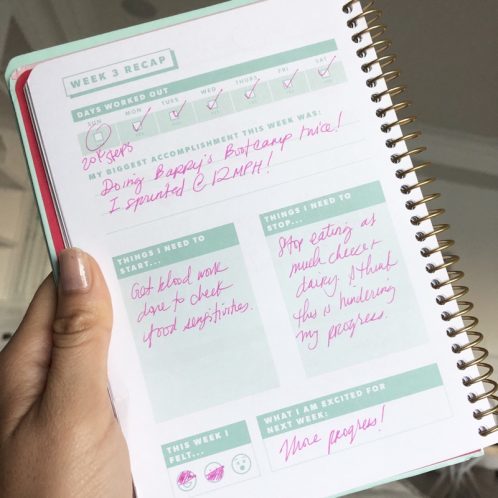 WEEK 3 RECAP
DAYS WORKED OUT
SUN MON TUES WED THURS FRI SAT
20K steps
MY BIGGEST ACCOMPLISHMENT THIS WEEK WAS:
Doing Barry's Bootcamp twice!
I sprinted @ 12MPH!
THINGS I NEED TO
START...
Get blood work
done to check
food sensitivities.
THINGS I NEED TO
STOP...
Stop eating as
much cheese +
dairy. I think
this is hindering
my progress.
THIS WEEK I
FELT...
WHAT I AM EXCITED FOR
NEXT WEEK:
More progress!